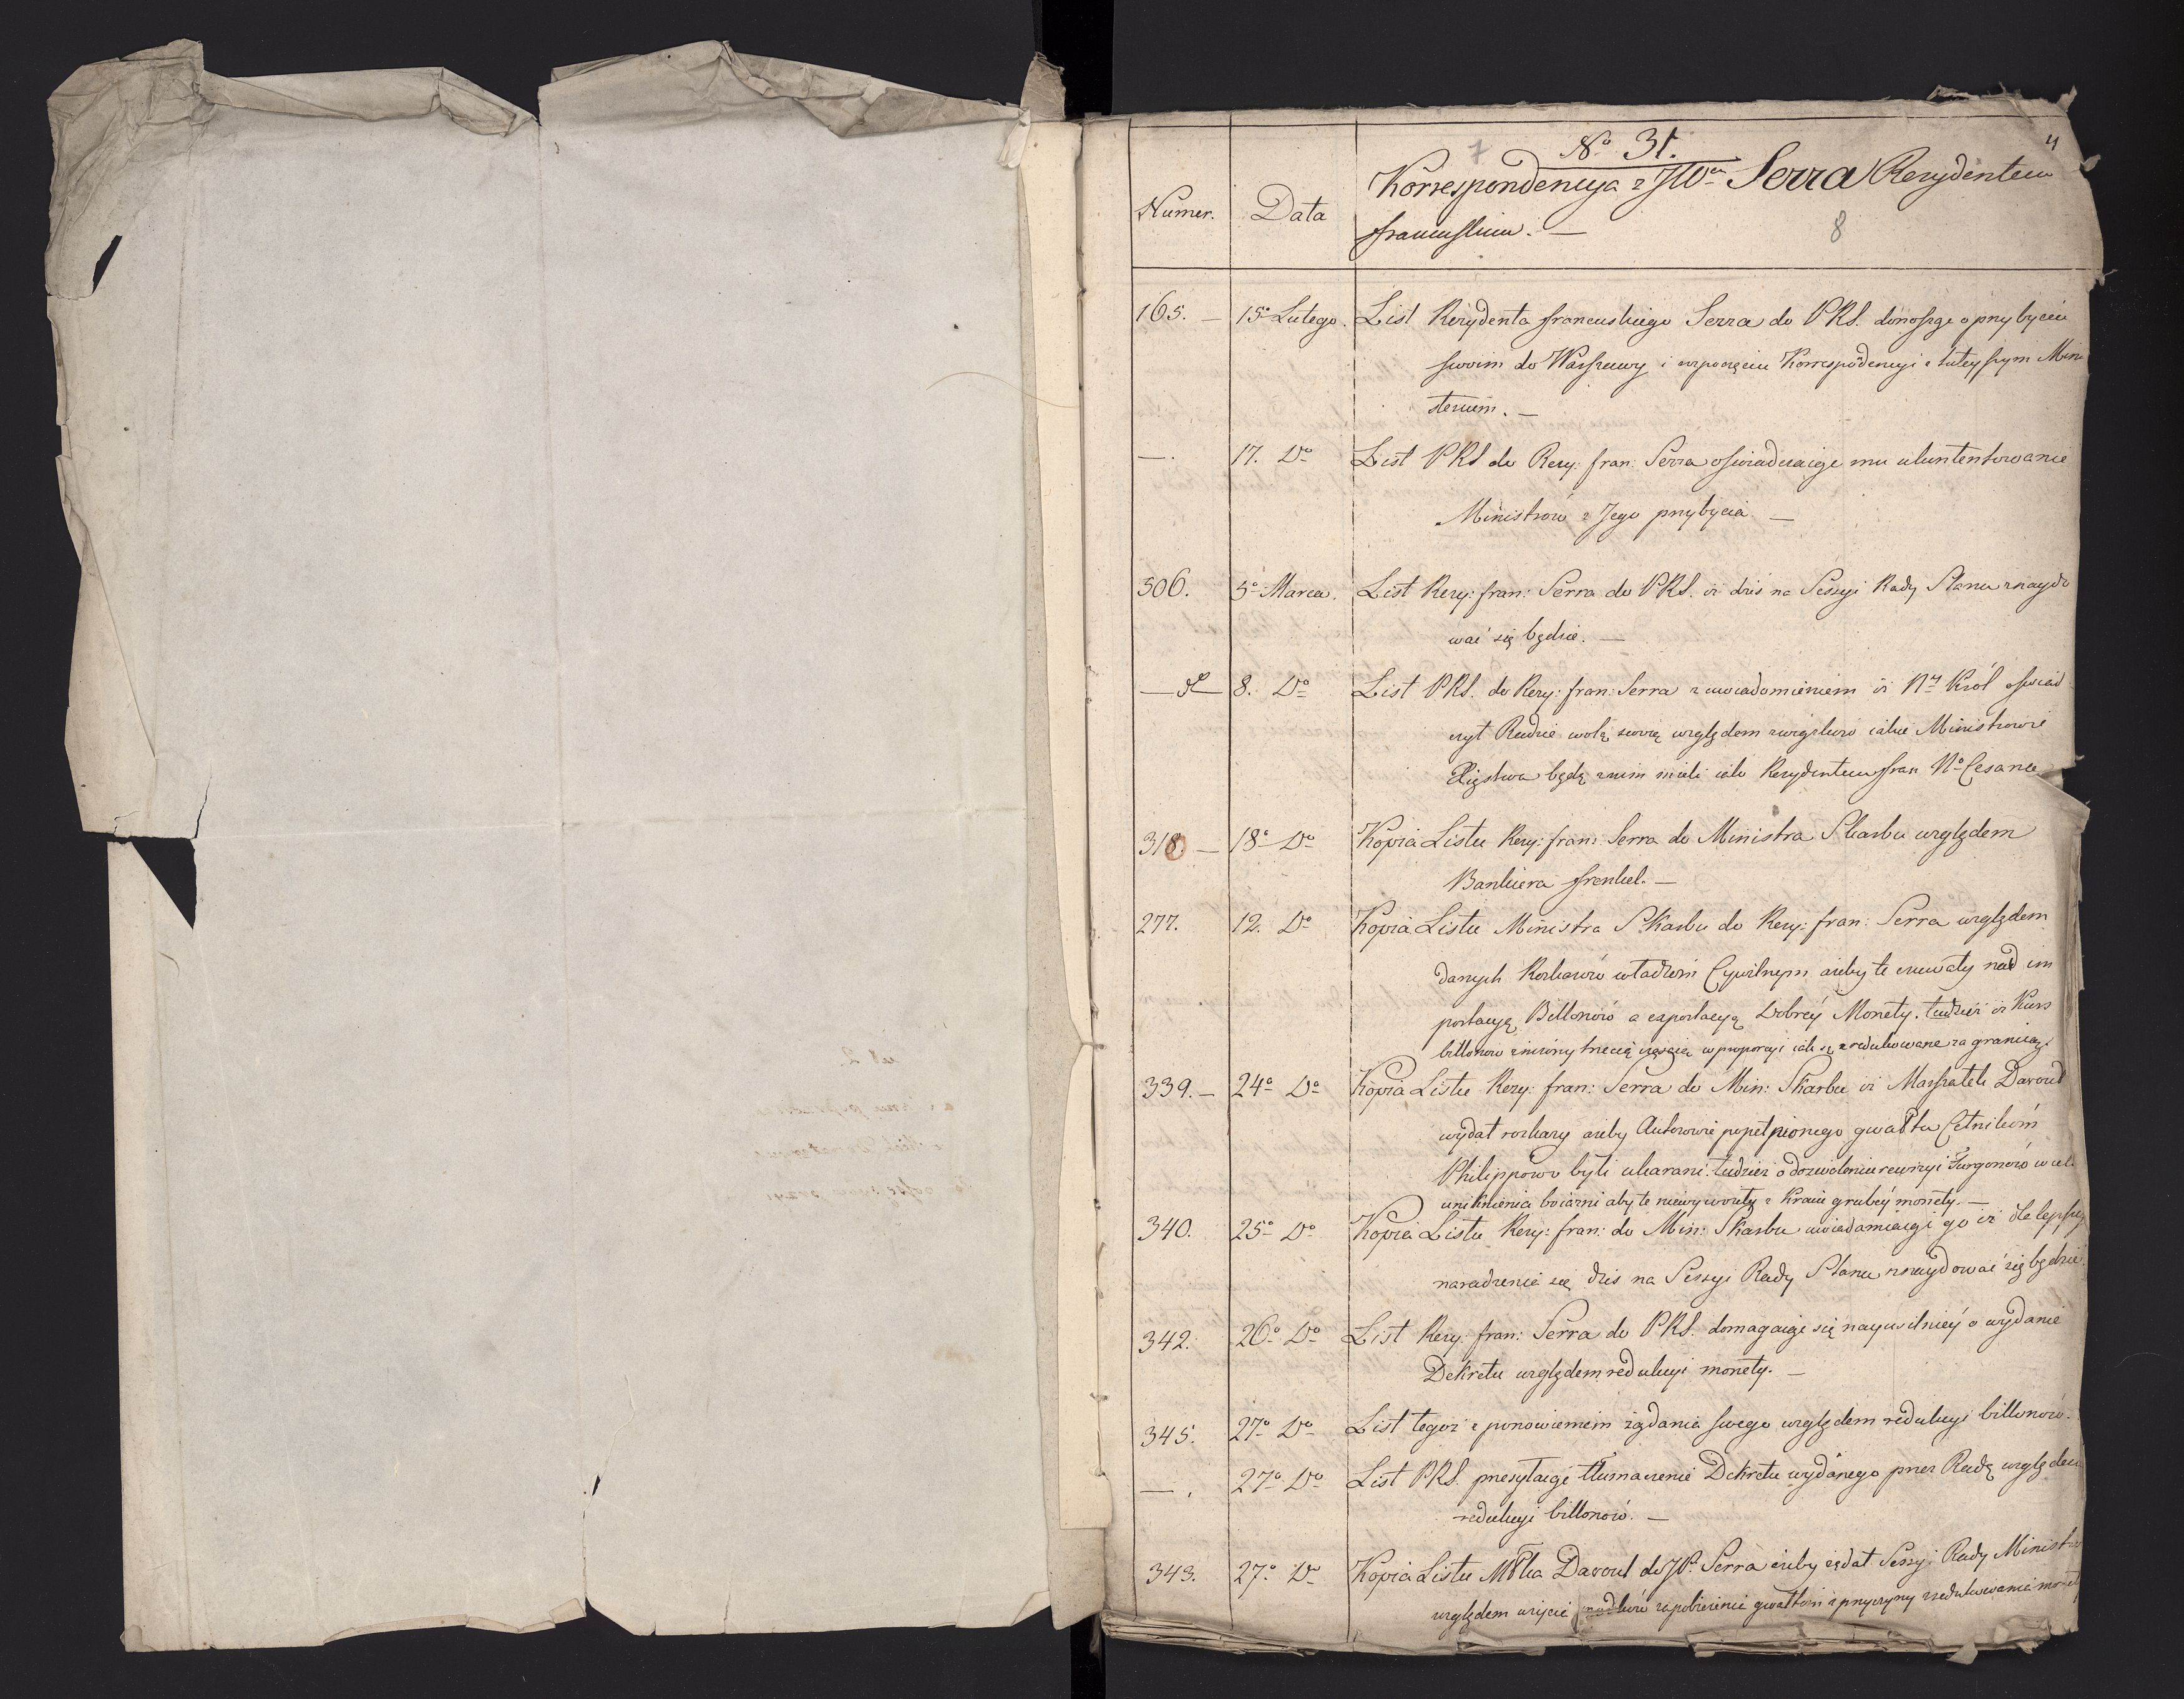 4
7
8
Numer.
Data
No 31.
Korrespondencya z JWm Serra Rezydentem
francuskim. —
165. — 15o Lutego. List Rezydenta francuskiego Serra do PRS. donosząc o przybyciu
swoim do Warszawy i rozpoczęciu Korrespodencyi z tuteyszym Mini
sterium. —
—. 17. Do List PRS do Rezy: fran: Serra oswiadczaiąc mu ukontentowanie
Ministrów z Jego przybycia. —
306. 5o Marca. List Rezy: fran: Serra do PRS. iż dziś na Sessyi Rady Stanu znaydo
wać się będzie. —
— 8. Do List PRS. do Rezy: fran: Serra z uwiadomieniem iż Ny Król oswiad
czył Radzie wolą swoią względem związków iakie Ministrowie
Xięstwa będą z nim mieli iako Rezydentem fran No Cesarza
318. — 18o Do Kopia Listu Rezy: fran: Serra do Ministra Skarbu względem
Bankiera Frenkel. —
277. 12. Do Kopia Listu Ministra Skarbu do Rezy: fran: Serra względem
danych Rozkazów władzom Cywilnym ażeby te czuwały nad im
portacyą Billonów a exportacyą Dobréy Monety. tudzież iż Kurs
billonow zniżony trzecią częścią w proporcyi iak są zredukowane za granicą.
339. — 24o Do Kopia Listu Rezy: fran: Serra do Min: Skarbu iż Marszałek Davout
wydał rozkazy ażeby Autorowie popełnionego gwałtu Celników
Philippowo byli ukarani. tudzież o dozwoleniu rewizyi Furgonów w cel.
uniknienia boiazni aby te niewywoziły z Kraiu grubéy monety. —
340. 25o Do Kopia Listu Rezy: fran: do Min: Skarbu uwiadamiaiąc go iż dla lepszeg
naradzenia się dziś na Sessyi Rady Stanu znaydować się będzie.
342. 26o Do List Rezy: fran: Serra do PRS. domagaiąc się nayusilniéy o wydanie
Dekretu względem redukcyi monety. —
345. 27o Do List tegoż z ponowieniem żądania swego względem redukcyi billonów.
— . 27o Do List PRS. przesyłaiąc tłumaczenie Dekretu wydanego przez Radę względem
redukcyi billonów. —
343. 27o Do Kopia Listu Młka Davout do JP. Serra ażeby żądał Sessyi Rady Ministrów
względem użycia środków zapobieżenia gwałtom z przyczyny zredukowania monety